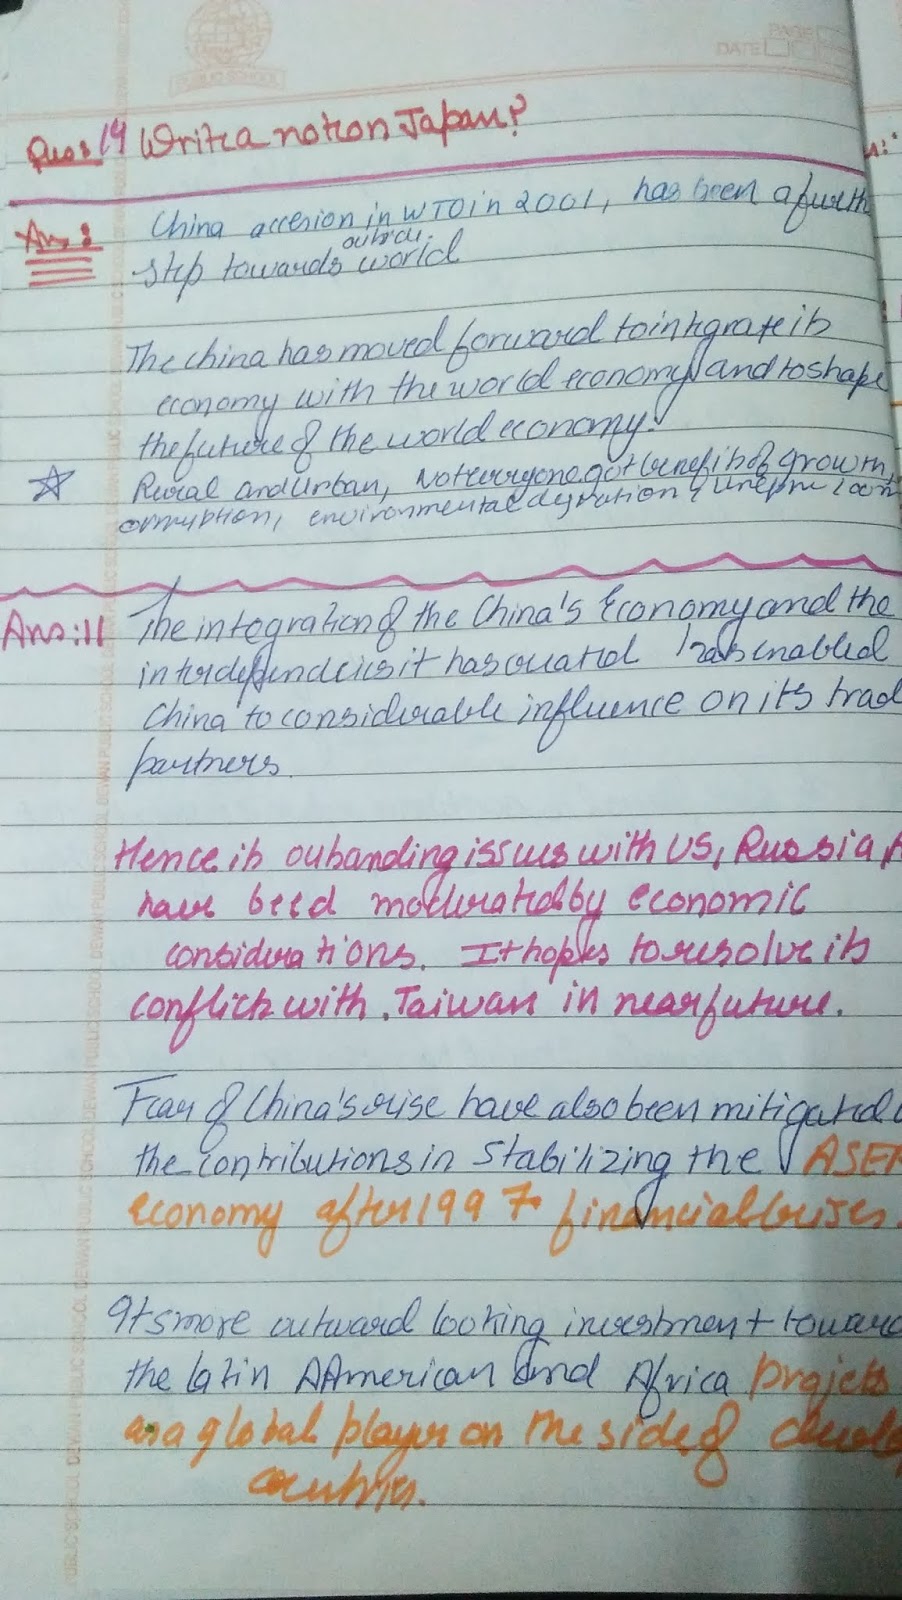 PAGE
DATE
PUBLIC SCHOOL
Ques 19 Write a note on Japan?
Ans: China accesion in WTO in 2001, has been a furth
outside
step towards world
The china has moved forward to integrate its
economy with the world economy and to shape
the future of the world economy.
Rural and urban, Not everyone got benefits of growth,
corruption, environmental degration &
Ans:11 The integration of the China's Economy and the
interdependencies it has created has enabled
China to considerable influence on its trad
partners.
Hence its outsanding issues with US, Russia
have beed moderated by economic
considerations. It hopes to resolve its
conflicts with Taiwan in near future.
Fear of China's rise have also been mitigated
the contributions in stabilizing the ASEA
economy after 1997 financial crises.
Its more outward looking investment toward
the Latin AAmerican and Africa projets
as a global player on the side of develo
countries.
DEWAN PUBLIC SCHOOL DEWAN PUBLIC SCHOOL DEWAN PUBLIC SCHOOL